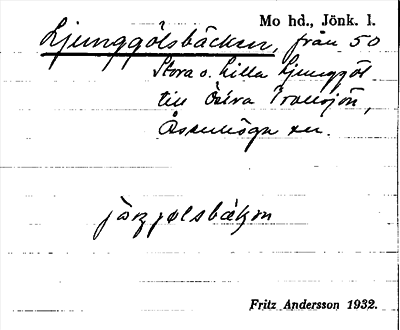 Mo hd., Jönk. l.
Ljunggölsbäcken, från 50
Stora o. Lilla Ljunggöl
till Östra Transjön,
Åsenhöga sn.
Fritz Andersson 1932.